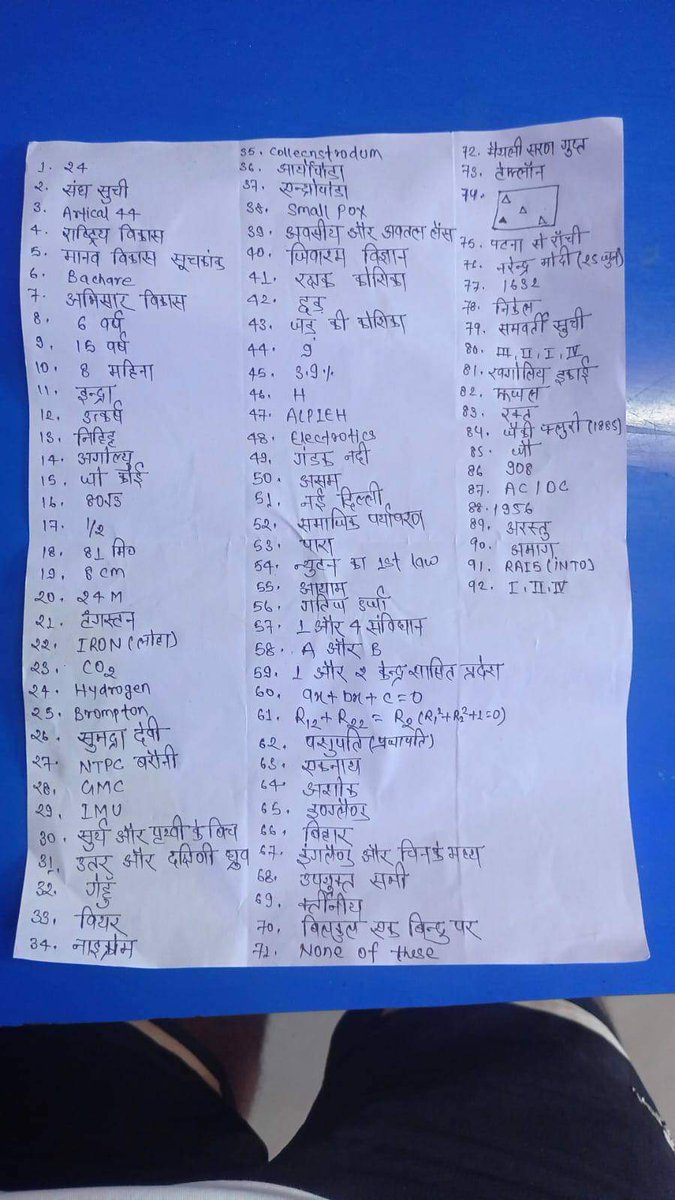 1. 24
2. संघ सुची
3. Artical 44
4. राष्ट्रिय विकास
5. मानव विकास सूचकांक
6. Bachare
7. अभिसार विकास
8. 6 वर्ष
9. 15 वर्ष
10. 8 महिना
11. इन्द्रा
12. उत्कर्ष
13. निहिट्
14. अगोल्य
15. जो कोई
16. 80रुड
17. 1/2
18. 81 मि०
19. 8 cm
20. 24 M
21. टंगस्तन
22. IRON (लोहा)
23. CO2
24. Hydrogen
25. Brompton
26. सुमद्रा देवी
27. NTPC बरौनी
28. GMC
29. IMU
30. सुर्य और पृथ्वी के बिच
31. उतर और दक्षिणी ध्रुव
32. गेहूँ
33. वियर
34. नाइक्रोम
35. Colleenstrodum
36. आर्थोपोडा
37. एन्थ्रोपोडा
38. Small Pox
39. अवसीय और अवतल लेंस
40. जिवाश्म विज्ञान
41. रक्षक कोसिका
42. हृद
43. जड़ की कोसिका
44. 9
45. 3.9%
46. H
47. ALPIEH
48. Electrotics
49. गंडक नदी
50. असम
51. नई दिल्ली
52. समाजिक पर्यावरण
53. पारा
54. न्युटन का 1st law
55. आयाम
56. गतिज उर्जा
57. 1 और 4 संविधान
58. A और B
59. 1 और २ केन्द्र सासित प्रदेश
60. ax+bx+c=0
61. R12+R22 = R2(R1²+R2²+1=0)
62. पसुपति (प्रजापति)
63. एकनाथ
64. अशोक
65. इंगलैण्ड
66. बिहार
67. इंगलैण्ड और चिन के मध्य
68. उपयुक्त सभी
69. क्लीनीय
70. बिलकुल एक बिन्दु पर
71. None of these
72. मैथली सरण गुप्त
73. टेफ्लॉन
74.
75. पटना से राँची
76. नरेन्द्र मोदी (25 जुन)
77. 1632
78. निकेल
79. समवर्ती सुची
80. III, II, I, IV
81. खगोलिय इकाई
82. कप्पल
83. रक्त
84. जैकी क्लुरी (1985)
85. जौ
86 908
87. AC/DC
88. 1956
89. अरस्तु
90. अमाग
91. RAIS (INTO)
92. I, II, IV